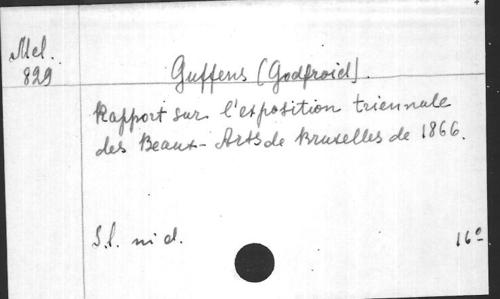 Mel.
829
Guffens (Godfroid).
Rapport sur l'exposition triennale
des Beaux-Arts de Bruxelles de 1866.
S.l. ni d.
16°